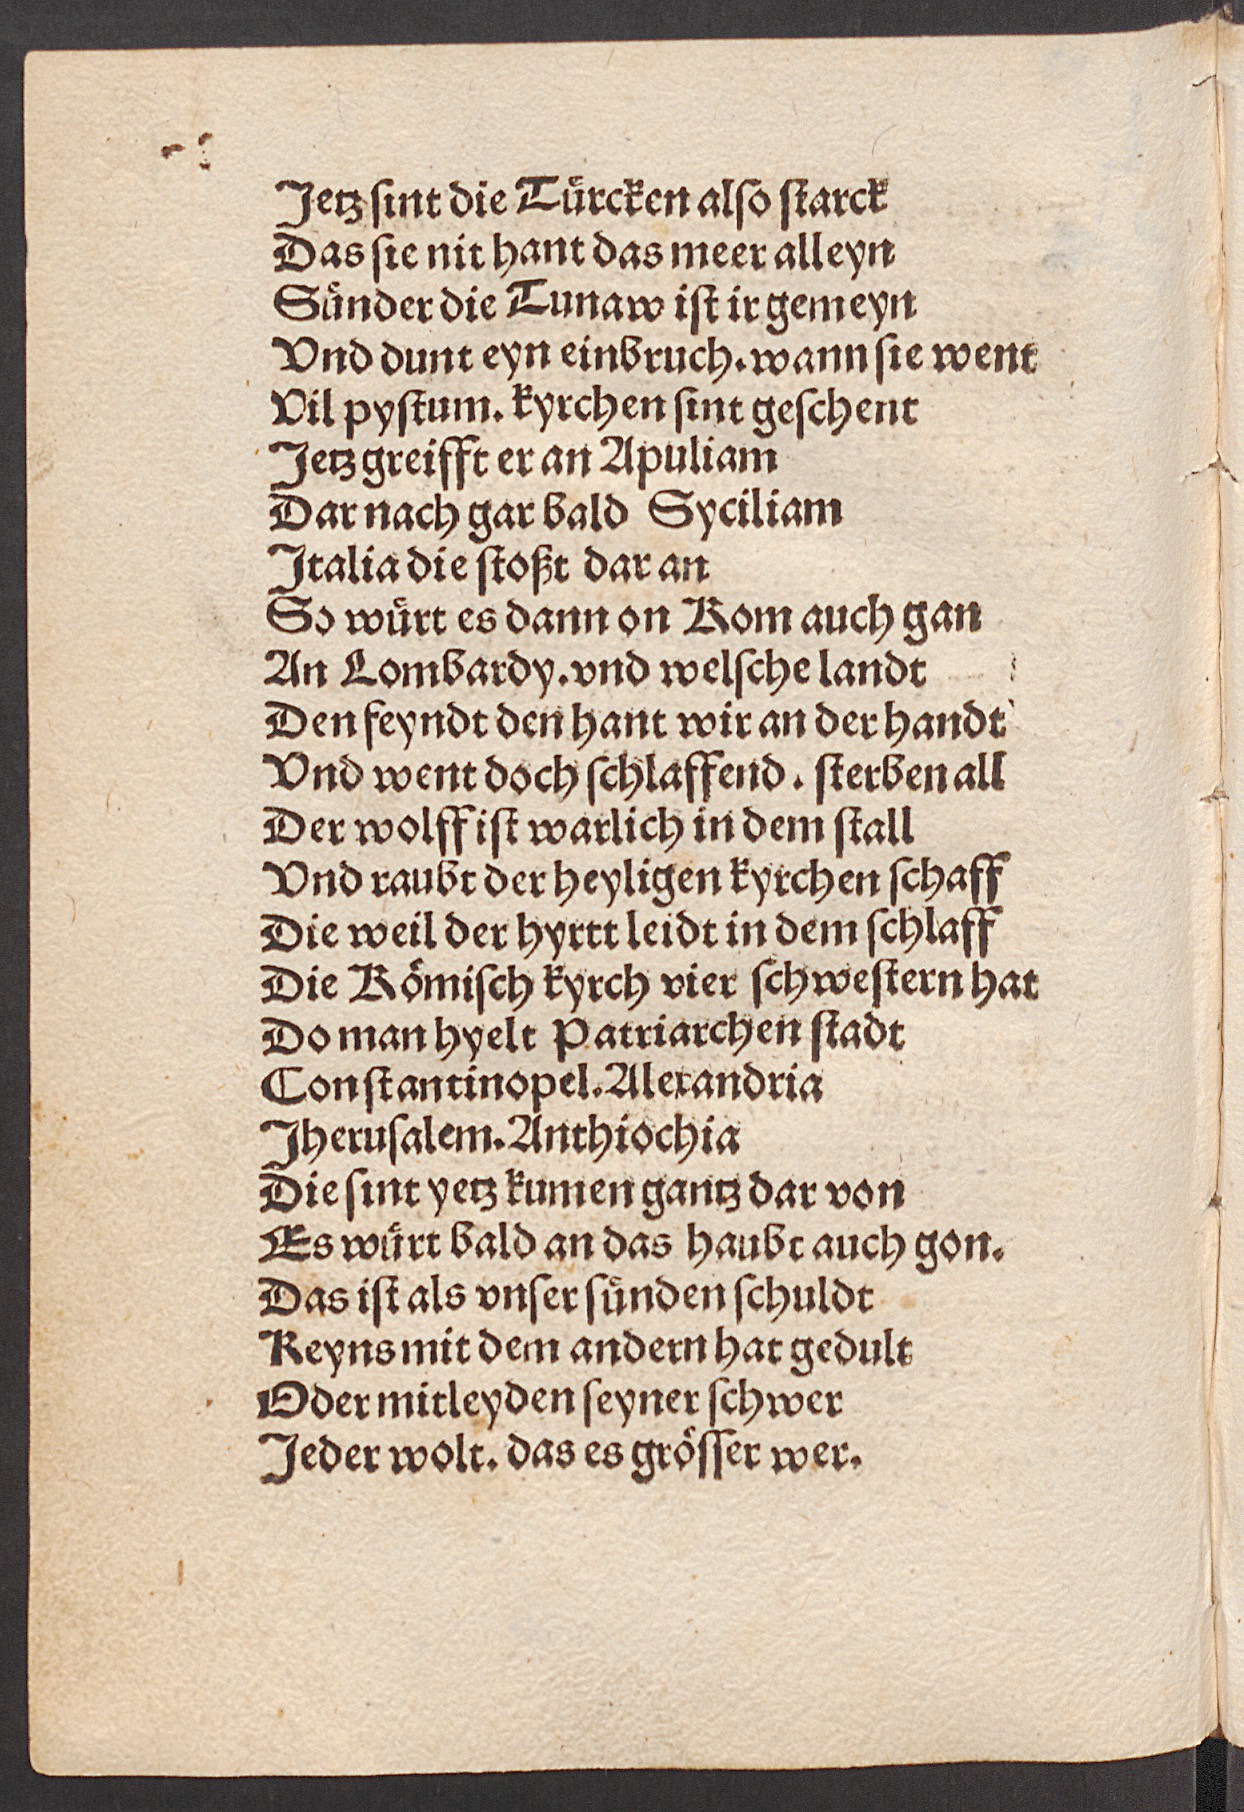 Jetz ſint die Türcken alſo ſtarck
Das ſie nit hant das meer alleyn
Sünder die Tunaw iſt ir gemeyn
Vnd dunt eyn einbruch. wann ſie went
Vil pyſtum. kyrchen ſint geſchent
Jetz greifft er an Apuliam
Dar nach gar bald Syciliam
Jtalia die ſtoßt dar an
So würt es dann on Rom auch gan
An Lombardy. vnd welſche landt
Den feyndt den hant wir an der handt
Vnd went doch ſchlaffend. ſterben all
Der wolff iſt warlich in dem ſtall
Vnd raubt der heyligen kyrchen ſchaff
Die weil der hyrtt leidt in dem ſchlaff
Die Römiſch kyrch vier ſchweſtern hat
Do man hyelt Patriarchen ſtadt
Conſtantinopel. Alexandria
Jheruſalem. Anthiochia
Die ſint yetz kumen gantz dar von
Es würt bald an das haubt auch gon.
Das iſt als vnſer ſünden ſchuldt
Keyns mit dem andern hat gedult
Oder mitleyden ſeyner ſchwer
Jeder wolt. das es gröſſer wer.